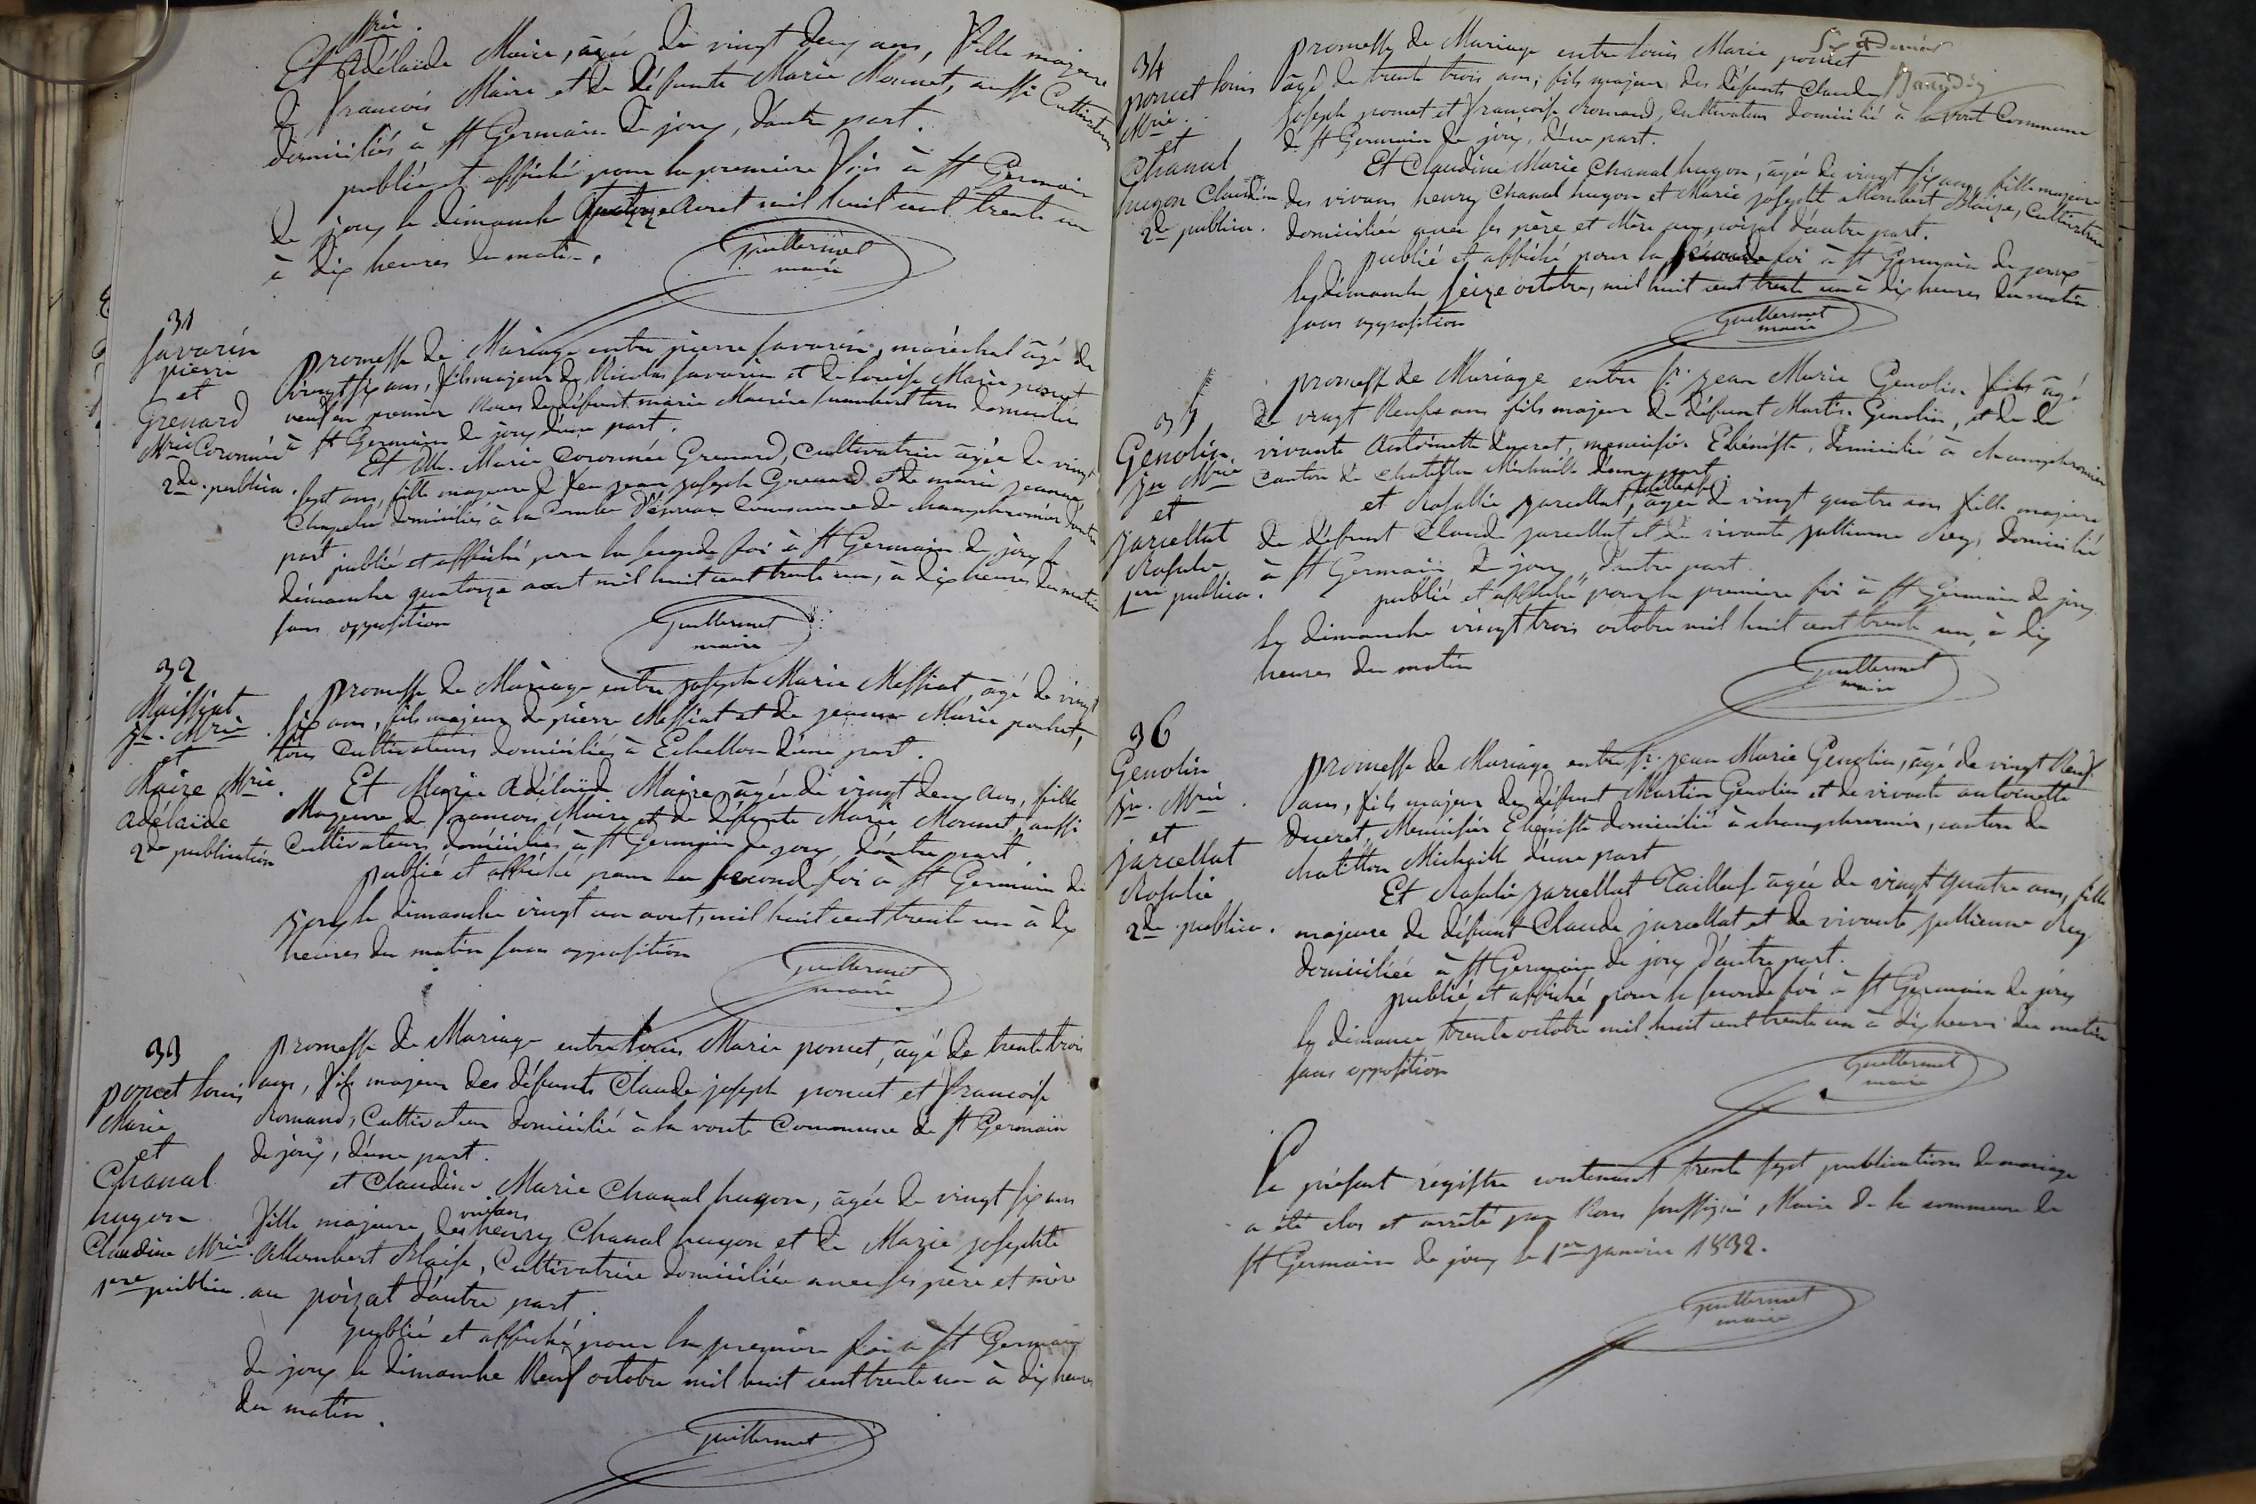 Mrie.
Et Adélaïde Maire, âgée de vingt deux ans, fille majeure
de francois Maire et de défunte Marie Monnet, aussi Cultivateurs
domiciliés à St Germain de joux, d'autre part.
publié et affiché pour la premiere fois à St Germain
de joux le dimanche quatorze aout mil huit cent trente un
à dix heures du matin.
Guillermet
maire
31
Savarin
pierre
et
Grenard
Mrie Coronnée
2de. publica.
promesse de Mariage entre pierre Savarin, maréchal âgé de
vingt six ans, fils majeur de Nicolas Savarin et de Louise Marie poncet
veuf en premier Noces de défunt marie tous domiciliés
à St Germain de joux d'une part.
Et Dlle. Marie Coronnée Grenard, Cultivatrice âgée de vingt
sept ans, fille majeure de feu jean joseph Grenard et de marie jeanne
Chapelu domiciliés à la Combe d'Evuaz Commune de champfromier d'autre
part publié et affiché pour la seconde foi à St Germain de joux le
dimanche quatorze aout mil huit cent trente un, à dix heures du matin
sans opposition
Guillermet
maire
32
Maissiat
jh. Mrie
et
Maire Mrie.
adélaïde
2de publication
promesse de Mariage entre joseph Marie Messiat, âgé de vingt
six ans, fils majeur de pierre Messiat et de jeanne Marie pochet,
tous Cultivateurs domiciliés à Echallon d'une part.
Et Marie Adélaïde Maire âgée de vingt deux ans, fille
Majeure de francois Maire et de défunte Marie Monnet, aussi
Cultivateurs domiciliés à St Germain de joux d'autre part
publié et affiché pour la second foi à St Germain de
joux le dimanche vingt un aout, mil huit cent trente un à dix
heures du matin sans opposition
Guillermet
maire
33
poncet Louis
Marie
et
Chanal
hugon
Claudine Mrie
1ere publica.
promesse de Mariage entre Louis Marie poncet, âgé de trente trois
ans, fils majeur des défunts Claude joseph poncet et francoise
Romand, Cultivateur domicilié à la voute Commune de St Germain
de joux, d'une part.
et Claudine Marie Chanal hugon, âgée de vingt six ans
vivans
fille majeure des henry Chanal hugon et de Marie josephte
Allombert Blaise, Cultivatrice domiciliée avec ses père et mère
au poizat d'autre part.
publié et affiché pour la premiere foi à St Germain
de joux le dimanche Neuf octobre mil huit cent trente un à dix heures
du matin.
Guillermet
34
poncet Louis
Mrie.
et
Chanal
hugon Claudine
2de publica.
promesse de Mariage entre Louis Marie poncet
âgé de trente trois ans, fils majeur des défunts Claude
joseph poncet et francoise Romand, Cultivateur domicilié à la vout Commune
de St Germain de joux, d'une part.
Et Claudine Marie Chanal hugon, âgée de vingt six ans, fille majeure
des vivans henry Chanal hugon et Marie josephte Allombert Blaise, Cultivatrice
domiciliée avec ses père et Mère au poizat d'autre part.
publié et affiché pour la seconde foi à St Germain de joux
le dimanche seize octobre, mil huit cent trente un à dix heures du matin
sans opposition
Guillermet
maire
35
Genolin.
jn Mrie
et
jarcellat
Rosalie
1ere publica.
promesse de Mariage entre Sr. jean Marie Genolin fils âgé
de vingt Neufs ans fils majeur de défunt Martin Genolin, et de
vivante Antoinette ducret, menuisier Ebéniste, domicilié à champfromier
Canton de Chatillon Michaille d'une part
Taillat
et Rosalie jarcellat, âgée de vingt quatre ans fille majeure
de défunt Claude jarcellat et de vivante jullienne Rey, domicilié
à St Germain de joux, d'autre part.
publié et affiché pour la premiere foi à St Germain de joux
le dimanche vingt trois octobre mil huit cent trente un, à dix
heures du matin
Guillermet
maire
36
Genolin
jn. Mrie.
et
jarcellat
Rosalie
2de publica.
promesse de Mariage entre Sr. jean Marie Genolin, âgé de vingt Neuf
ans, fils majeur de défunt Martin Genolin et de vivante antoinette
ducret, Menuisier Ebéniste domicilié à champfromier, canton de
chatillon Michaille d'une part
Et Rosalie jarcellat Taillat âgée de vingt quatre ans, fille
majeure de défunt Claude jarcellat et de vivante jullienne Rey
domiciliée à St Germain de joux d'autre part.
publié et affiché pour la seconde foi à St Germain de joux
le dimance trente octobre mil huit cent trente un à dix heures du matin
sans opposition
Guillermet
maire
Le présent régistre contenant trente sept publications de mariage
a été clos et arrêté par Nous soussigné, Maire de la commune de
St Germain de joux le 1er janvier 1832.
Guillermet
maire